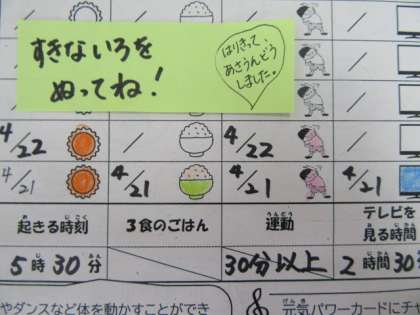 すきないろを
ぬってね！
はりきって、
あさうんどう
しました。
4/22 / 4/22 /
4/21 4/21 4/21 4/21
起きる時刻 3食のごはん 運動 テレビを見る時間
5時30分 30分以上 2時間30
やダンスなど体を動かすことができ
元気パワーカードにチ